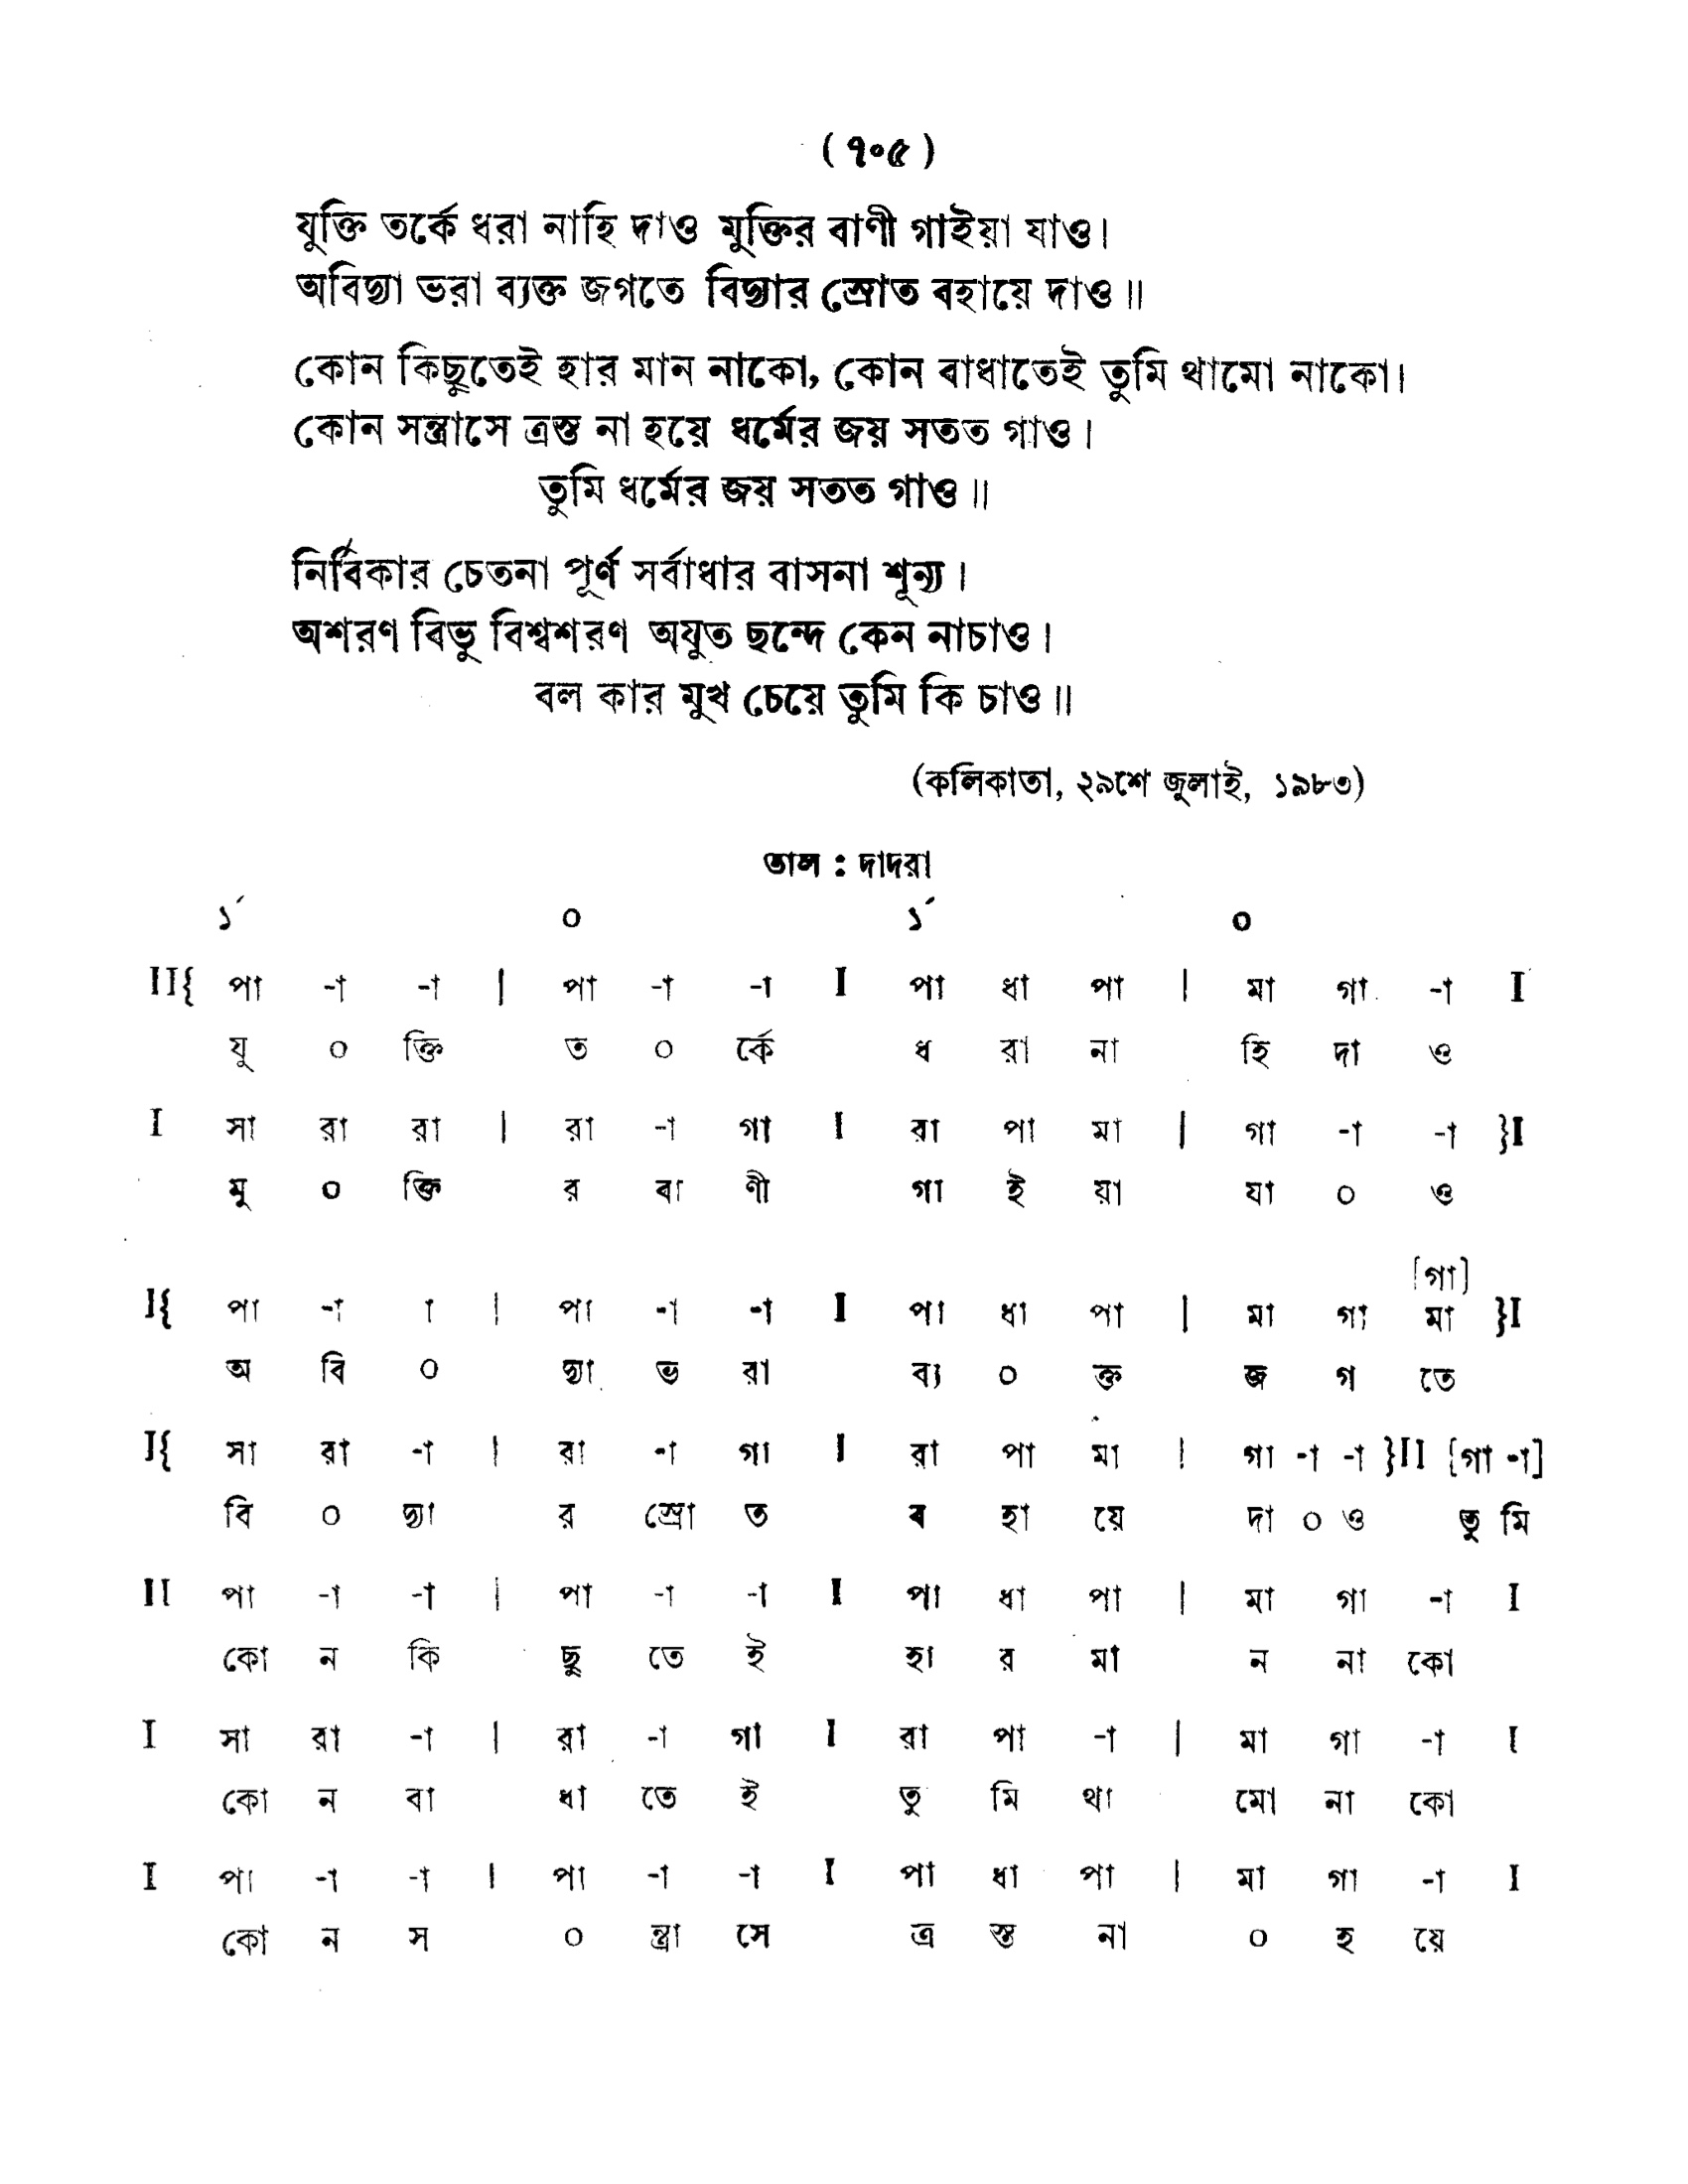 ( ৭০৫ )
যুক্তি তর্কে ধরা নাহি দাও মুক্তির বাণী গাইয়া যাও।
অবিদ্যা ভরা ব্যক্ত জগতে বিদ্যার স্রোত বহায়ে দাও॥
কোন কিছুতেই হার মান নাকো, কোন বাধাতেই তুমি থামো নাকো।
কোন সন্ত্রাসে ত্রস্ত না হয়ে ধর্মের জয় সতত গাও।
তুমি ধর্মের জয় সতত গাও॥
নির্বিকার চেতনা পূর্ণ সর্বাধার বাসনা শূন্য।
অশরণ বিভু বিশ্বশরণ অযুত ছন্দে কেন নাচাও।
বল কার মুখ চেয়ে তুমি কি চাও॥
(কলিকাতা, ২৯শে জুলাই, ১৯৮৩)
তাল : দাদরা
১´ ০ ১´ ০
II{ পা -া -া | পা -া -া I পা ধা পা | মা গা -া I
যু ০ ক্তি ত ০ র্কে ধ রা না হি দা ও
I সা রা রা | রা -া গা I রা পা মা | গা -া -া }I
মু ০ ক্তি র বা ণী গা ই য়া যা ০ ও
[গা]
I{ পা -া া | পা -া -া I পা ধা পা | মা গা মা }I
অ বি ০ দ্যা ভ রা ব্য ০ ক্ত জ গ তে
I{ সা রা -া | রা -া গা I রা পা মা | গা -া -া }II [গা -া]
বি ০ দ্যা র স্রো ত ব হা য়ে দা ০ ও তু মি
II পা -া -া | পা -া -া I পা ধা পা | মা গা -া I
কো ন কি ছু তে ই হা র মা ন না কো
I সা রা -া | রা -া গা I রা পা -া | মা গা -া I
কো ন বা ধা তে ই তু মি থা মো না কো
I পা -া -া | পা -া -া I পা ধা পা | মা গা -া I
কো ন স ০ ন্ত্রা সে ত্র স্ত না ০ হ য়ে